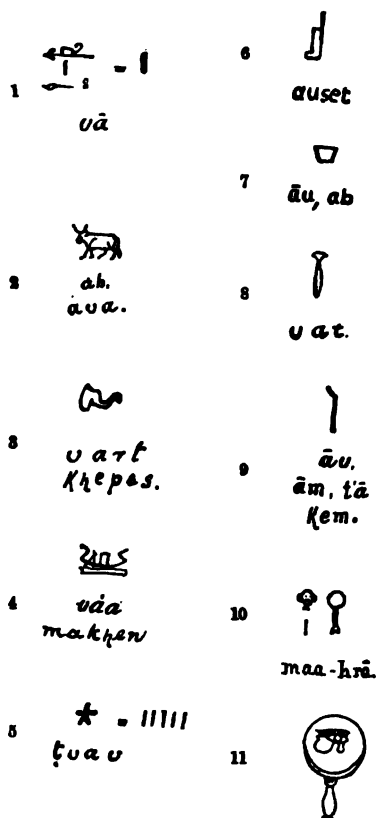 1
= I
s
uā
2
ah.
aua.
3
uart
Khepes.
4
uȧa
makhen
5
* = IIIII
ṭuau
6
auset
7
āu, ab
8
uat.
9
āu.
ām, t'ā
Kem.
10
maa-hrā.
11